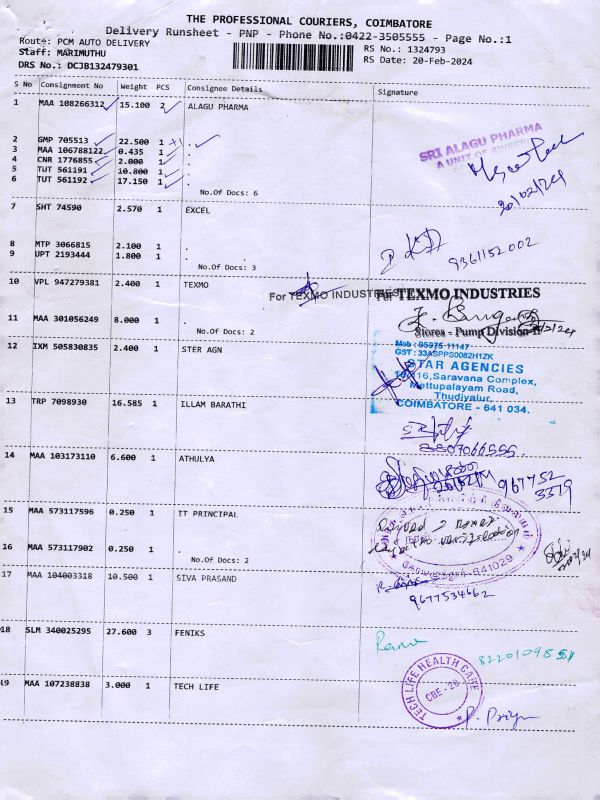 THE PROFESSIONAL COURIERS, COIMBATORE
Delivery Runsheet - PNP - Phone No.:0422-3505555 - Page No.:1
Route: PCM AUTO DELIVERY RS No.: 1324793
Staff: MARIMUTHU RS Date: 20-Feb-2024
DRS No.: DCJB132479301
S No Consignment No Weight PCS Consignee Details Signature
1 MAA 108266312 15.100 2 ALAGU PHARMA
SRI ALAGU PHARMA
A UNIT OF
2 GMP 705513 22.500 1 .
3 MAA 106788122 0.435 1 .
4 CNR 1776855 2.000 1 .
5 TUT 561191 10.800 1 .
6 TUT 561192 17.150 1 .
No.Of Docs: 6
20/02/24
7 SHT 74590 2.570 1 EXCEL
8 MTP 3066815 2.100 1 .
9 UPT 2193444 1.800 1 .
No.Of Docs: 3
9361152002
10 VPL 947279381 2.400 1 TEXMO
For TEXMO INDUSTRIES
For TEXMO INDUSTRIES
11 MAA 301056249 8.000 1 .
No.Of Docs: 2
Stores - Pump Division-II
12 IXM 505830835 2.400 1 STER AGN
Mob : 95975-11147
GST : 33ASPPS0082H1ZK
STAR AGENCIES
16, Saravana Complex,
Mettupalayam Road,
Thudiyalur,
COIMBATORE - 641 034.
13 TRP 7098930 16.585 1 ILLAM BARATHI
8807066555
14 MAA 103173110 6.600 1 ATHULYA
967752
3379
15 MAA 573117596 0.250 1 IT PRINCIPAL
16 MAA 573117902 0.250 1 .
No.Of Docs: 2
641029
17 MAA 104003318 10.500 1 SIVA PRASAND
9677534662
18 SLM 340025295 27.600 3 FENIKS
Rama
8220109851
19 MAA 107238838 3.000 1 TECH LIFE
TECH LIFE HEALTH CARE
CBE-28
P. Priya